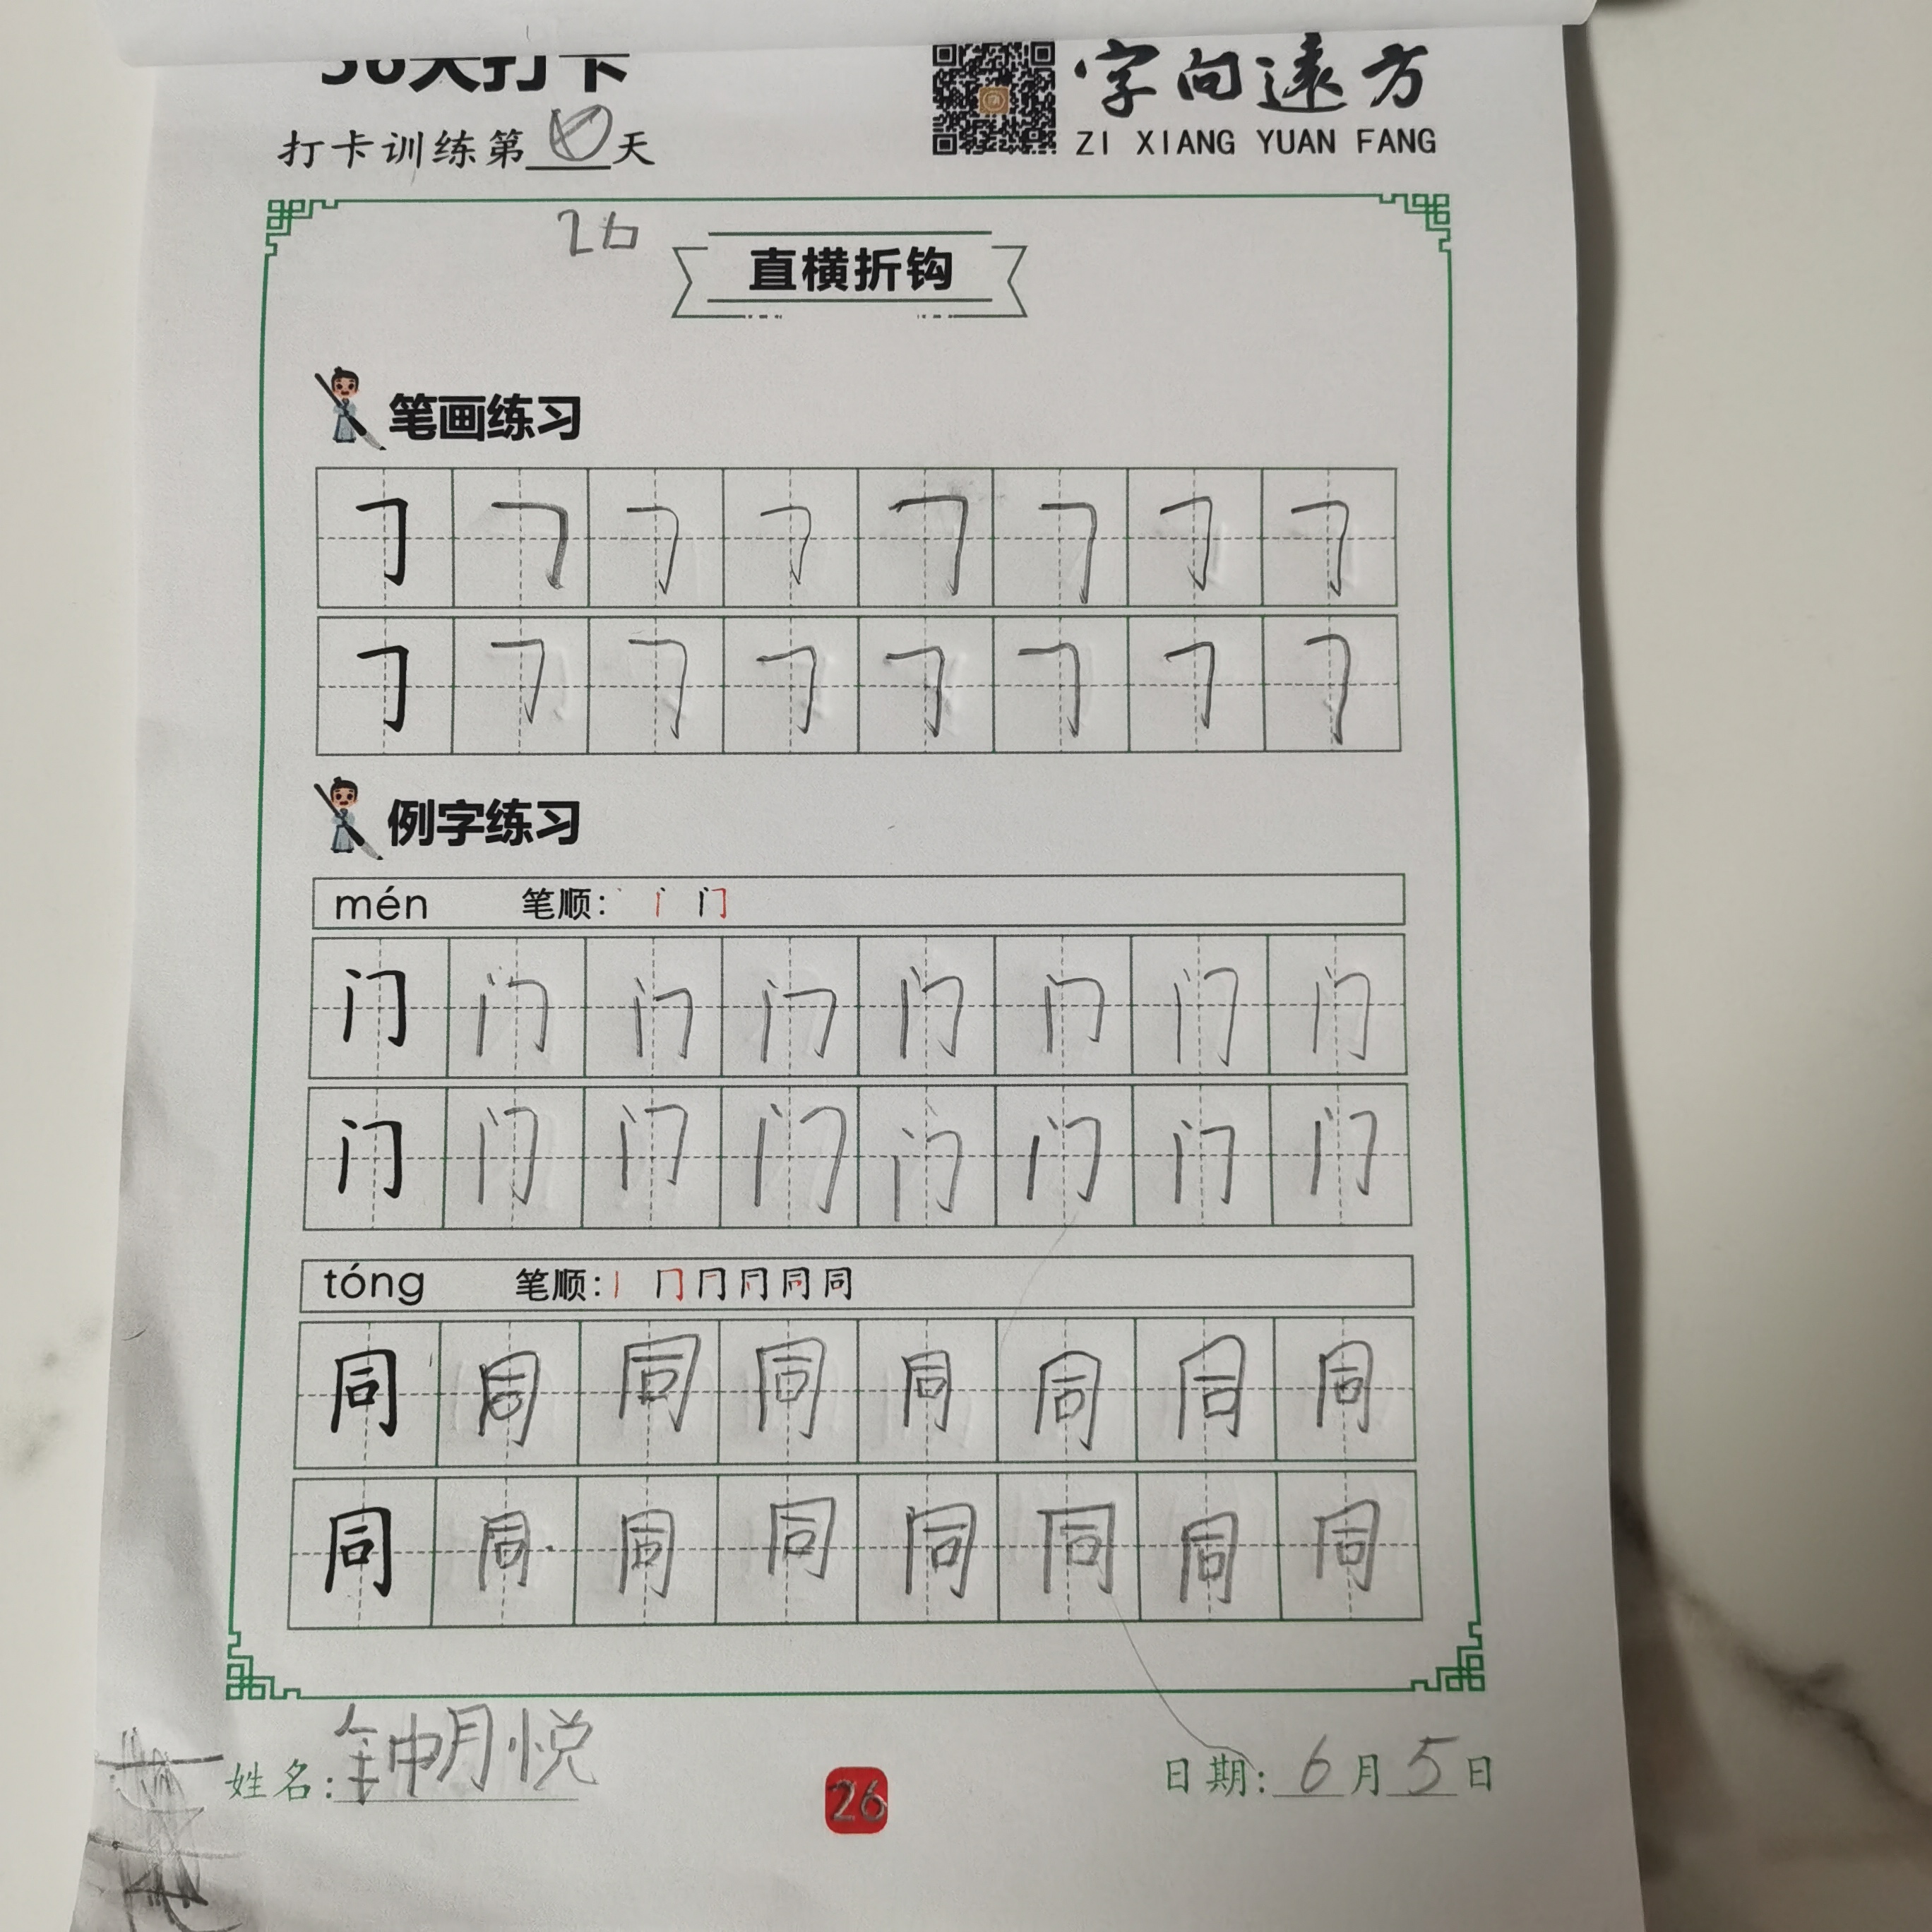 天打卡
字向遠方
打卡训练第天
ZI XIANG YUAN FANG
26
直横折钩
笔画练习
𠃌 𠃌 𠃌 𠃌 𠃌 𠃌 𠃌 𠃌
𠃌 𠃌 𠃌 𠃌 𠃌 𠃌 𠃌 𠃌
例字练习
mén 笔顺: 丶 门
门 门 门 门 门 门 门 门
门 门 门 门 门 门 门 门
tóng 笔顺: 丨 冂 同
同 同 同 同 同 同 同 同
同 同 同 同 同 同 同 同
姓名: 钟月悦
26
日期: 6月5日